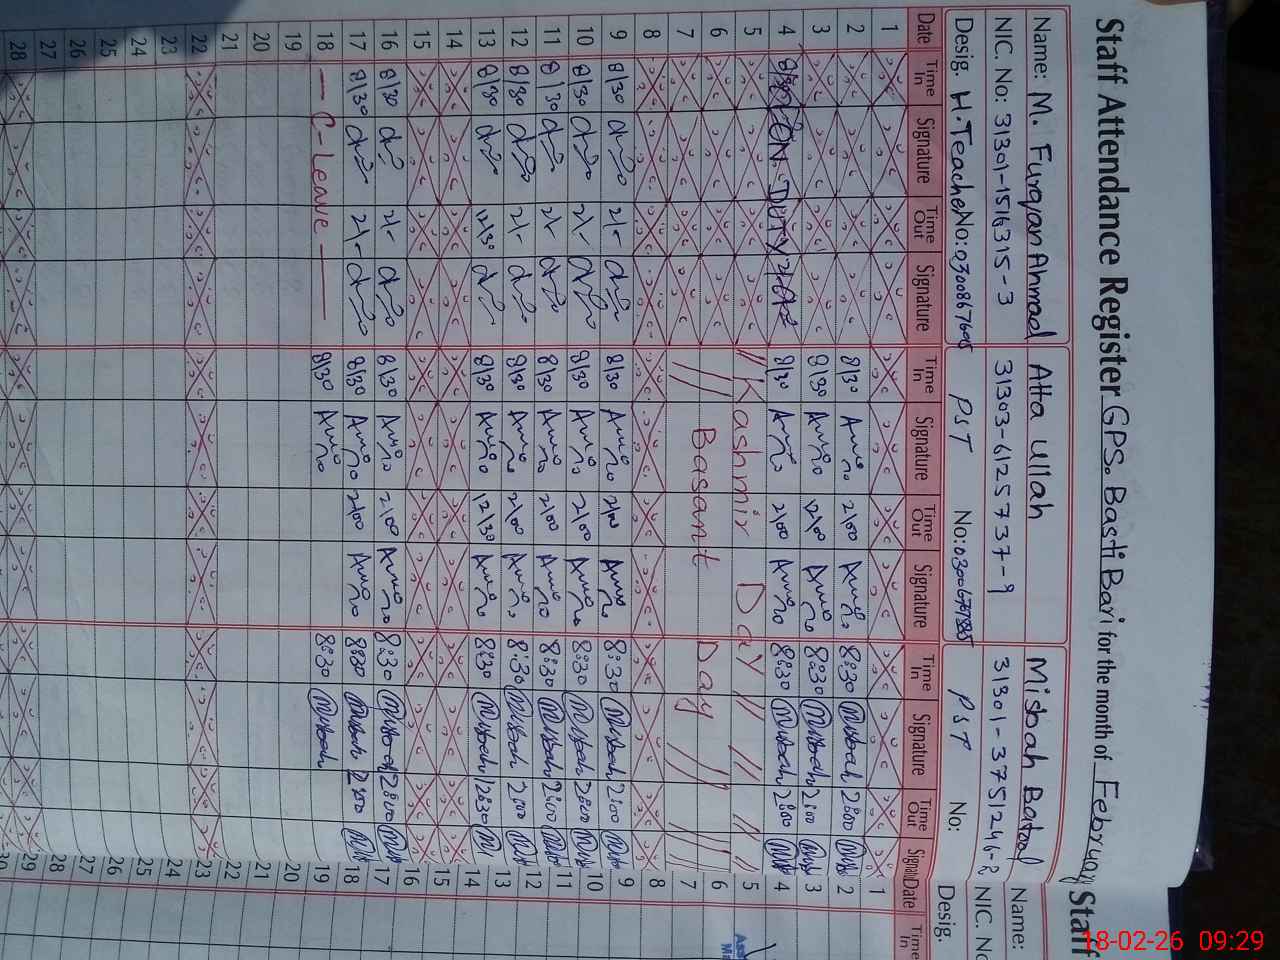 Staff Attendance Register GPS. Basti Bari for the month of February Staff
Name: M. Furqan Ahmad Atta Ullah Misbah Batool Name:
NIC. No: 31301-1516315-3 31303-6125737-9 31301-3751246-2 NIC. No
Desig. H.Teacher No: PST No: PST No: Desig.
Date Time In Signature Time Out Signature Time In Signature Time Out Signature Time In Signature Time Out Signatu Date Time In
1 1
2 8/30 2/00 8:30 Misbah 2:00 2
3 8/30 12/00 8:30 Misbah 2:00 3
4 ON DUTY 8/30 2/00 8:30 Misbah 2:00 4
5 Kashmir Day 5
6 Basant Day 6
7 7
8 8
9 8/30 2/- 8/30 2/00 8:30 Misbah 2:00 9
10 8/30 2/- 8/30 2/00 8:30 Misbah 2:00 10
11 8/30 2/- 8/30 2/00 8:30 Misbah 2:00 11
12 8/30 2/- 8/30 2/00 8:30 Misbah 2:00 12
13 8/30 12/30 8/30 12/30 8:30 Misbah 12:30 13
14 14
15 15
16 8/30 2/- 8/30 2/00 8:30 Misbah 2:00 16
17 8/30 2/- 8/30 2/00 8:30 Misbah 2:00 17
18 C-Leave 8/30 8:30 Misbah 18
19 19
20 20
21 21
22 22
23 23
24 24
25 25
26 26
27 27
28 28
29
30
18-02-26 09:29